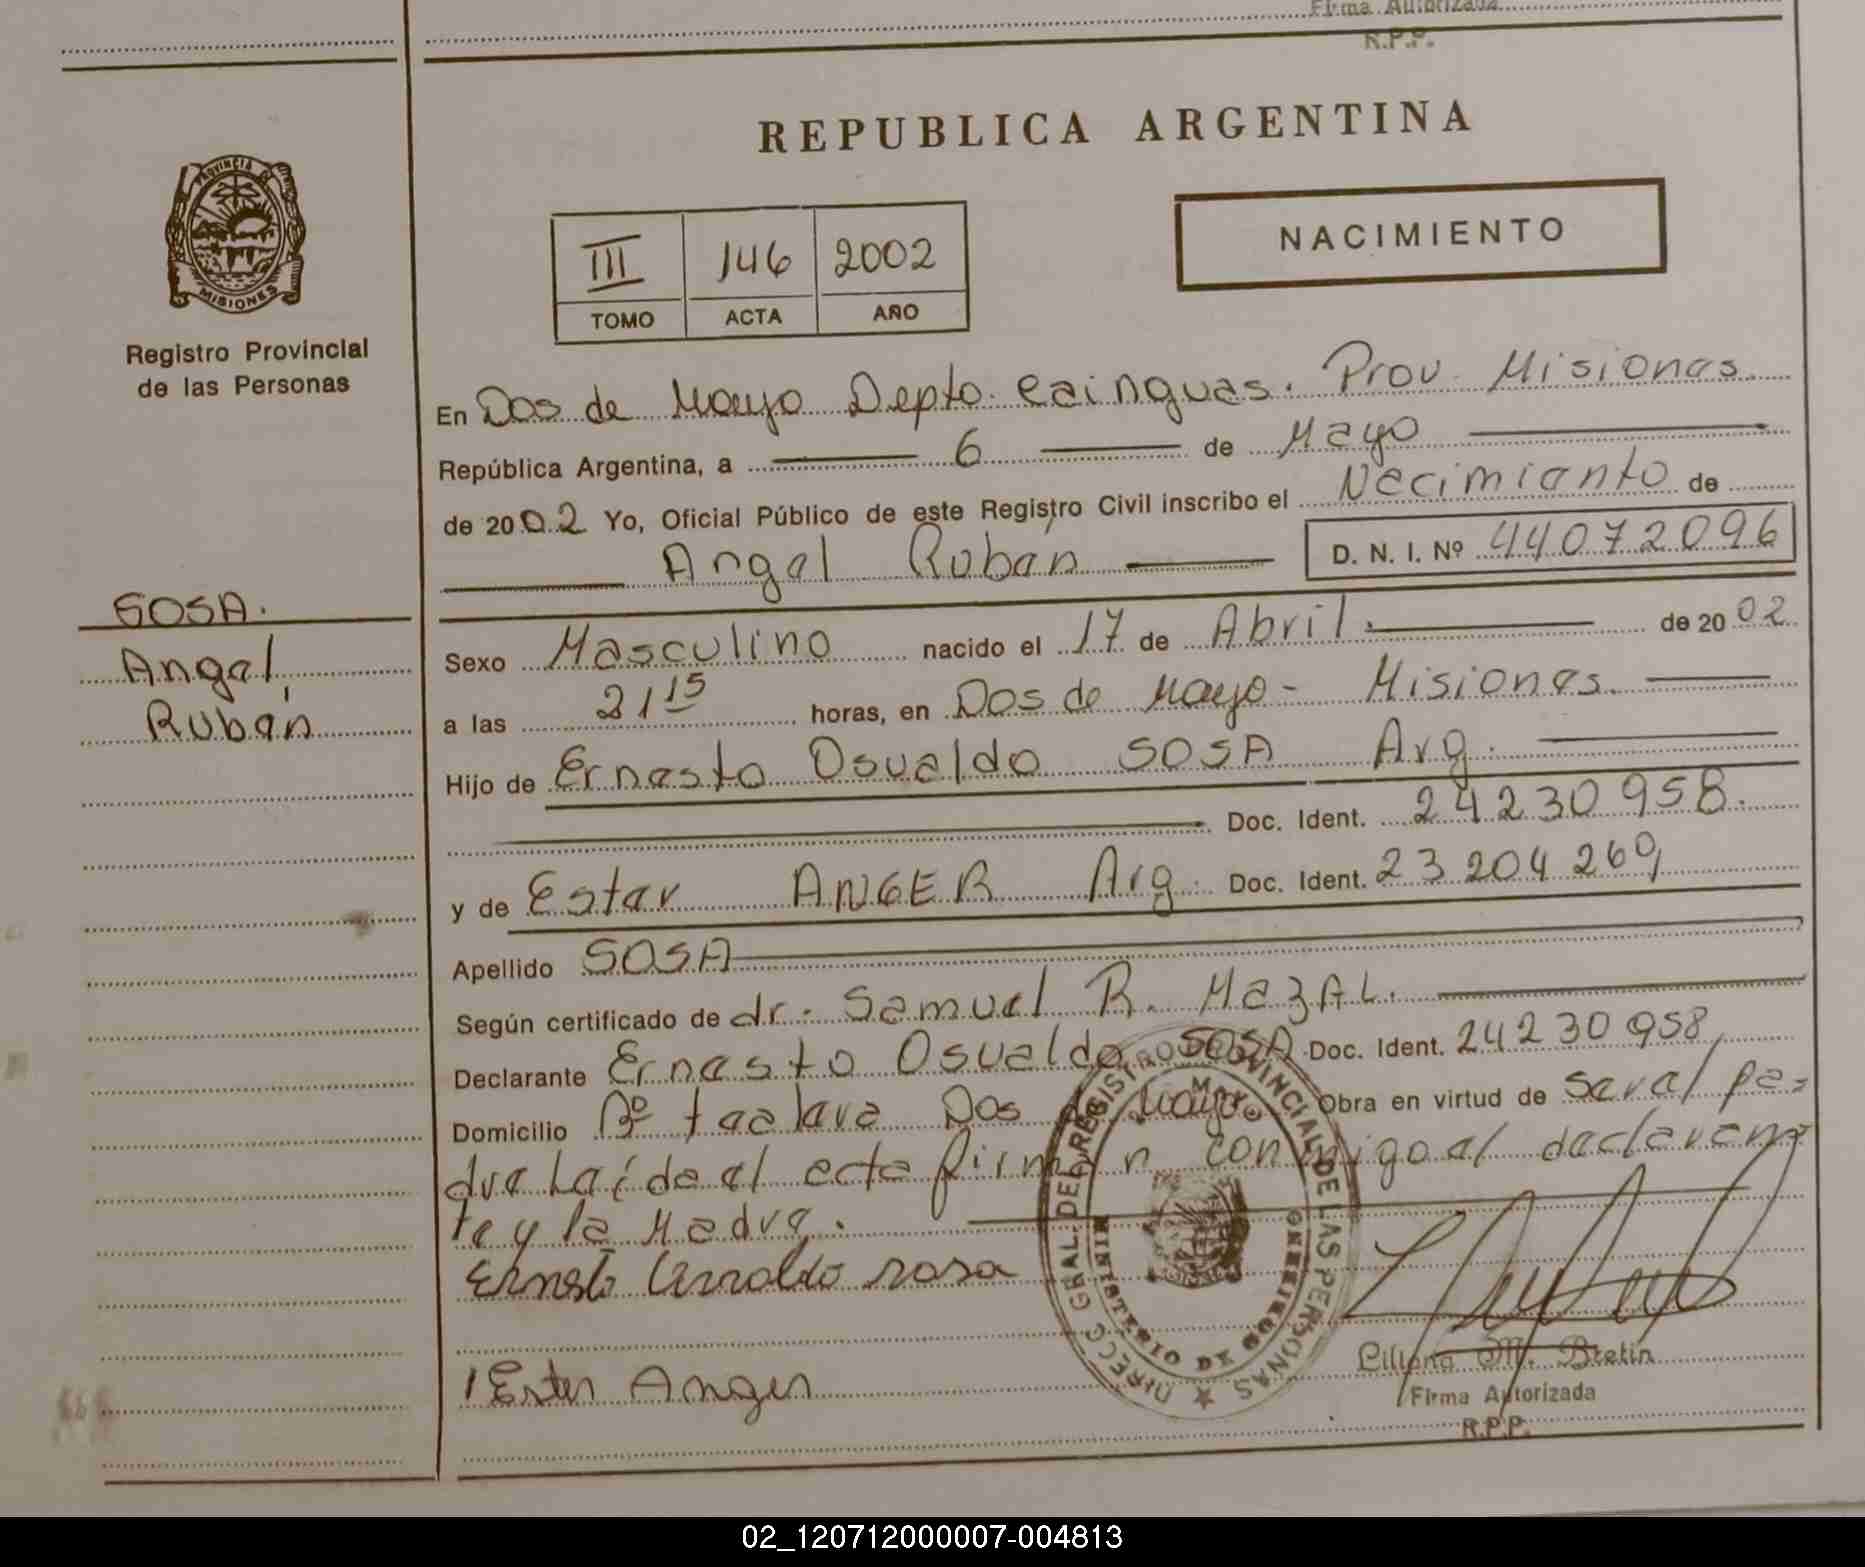 Firma Autorizada
R.P.P.
REPUBLICA ARGENTINA
PROVINCIA DE
MISIONES
Registro Provincial
de las Personas
III 146 2002
TOMO ACTA AÑO
NACIMIENTO
En Dos de Mayo Depto. Cainguas. Prov. Misiones.
República Argentina, a 6 de Mayo
de 2002 Yo, Oficial Público de este Registro Civil inscribo el Nacimiento de
Angel Ruben D. N. I. Nº 44072096
SOSA.
Angel
Ruben
Sexo Masculino nacido el 17 de Abril. de 2002
a las 21 15 horas, en Dos de Mayo - Misiones.
Hijo de Ernesto Osvaldo SOSA Arg.
Doc. Ident. 24230958.
y de Ester ANGER Arg. Doc. Ident. 23204269
Apellido SOSA
Según certificado de dr. Samuel R. MazAL.
Declarante Ernesto Osvaldo SOSA Doc. Ident. 24230958
Domicilio Bº Dos de Mayo. Obra en virtud de ser el pa=
dre Leída el acta firman conmigo el declaran=
te y la Madre.
Ernesto Osvaldo sosa
Ester Anger
DIRECC GRAL. DEL REGISTRO PROVINCIAL DE LAS PERSONAS
MINISTERIO DE GOBIERNO
Liliana M. Bretin
Firma Autorizada
R.P.P.
02_120712000007-004813